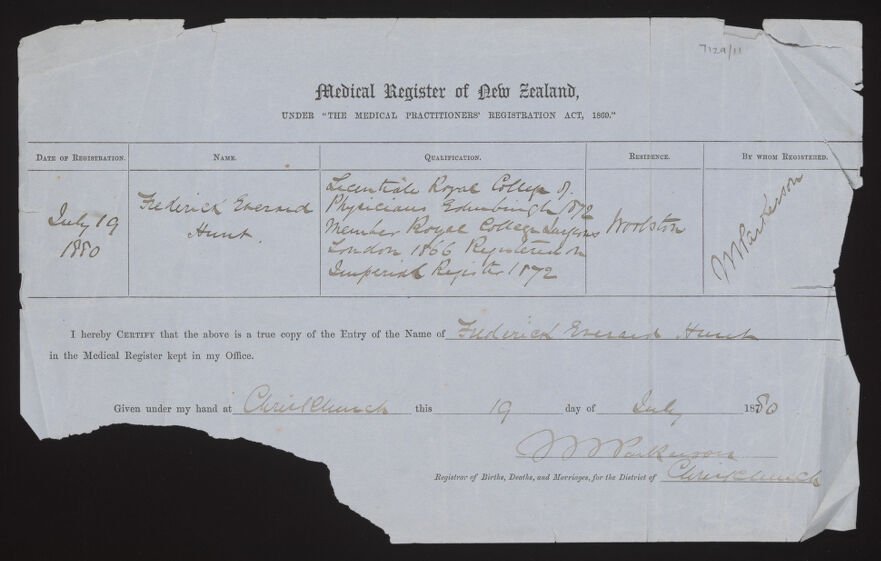 7129/11
Medical Register of New Zealand,
UNDER "THE MEDICAL PRACTITIONERS' REGISTRATION ACT, 1869."
DATE OF REGISTRATION. NAME. QUALIFICATION. RESIDENCE. BY WHOM REGISTERED.
July 19
1880
Frederick Everard
Hunt.
Licentiate Royal College of
Physicians Edinburgh 1872
Member Royal College Surgeons
London 1866 Registered on
Imperial Register 1872
Woolston
Parkerson
I hereby CERTIFY that the above is a true copy of the Entry of the Name of Frederick Everard Hunt
in the Medical Register kept in my Office.
Given under my hand at Christchurch this 19 day of July 1880
Parkerson
Registrar of Births, Deaths, and Marriages, for the District of Christchurch